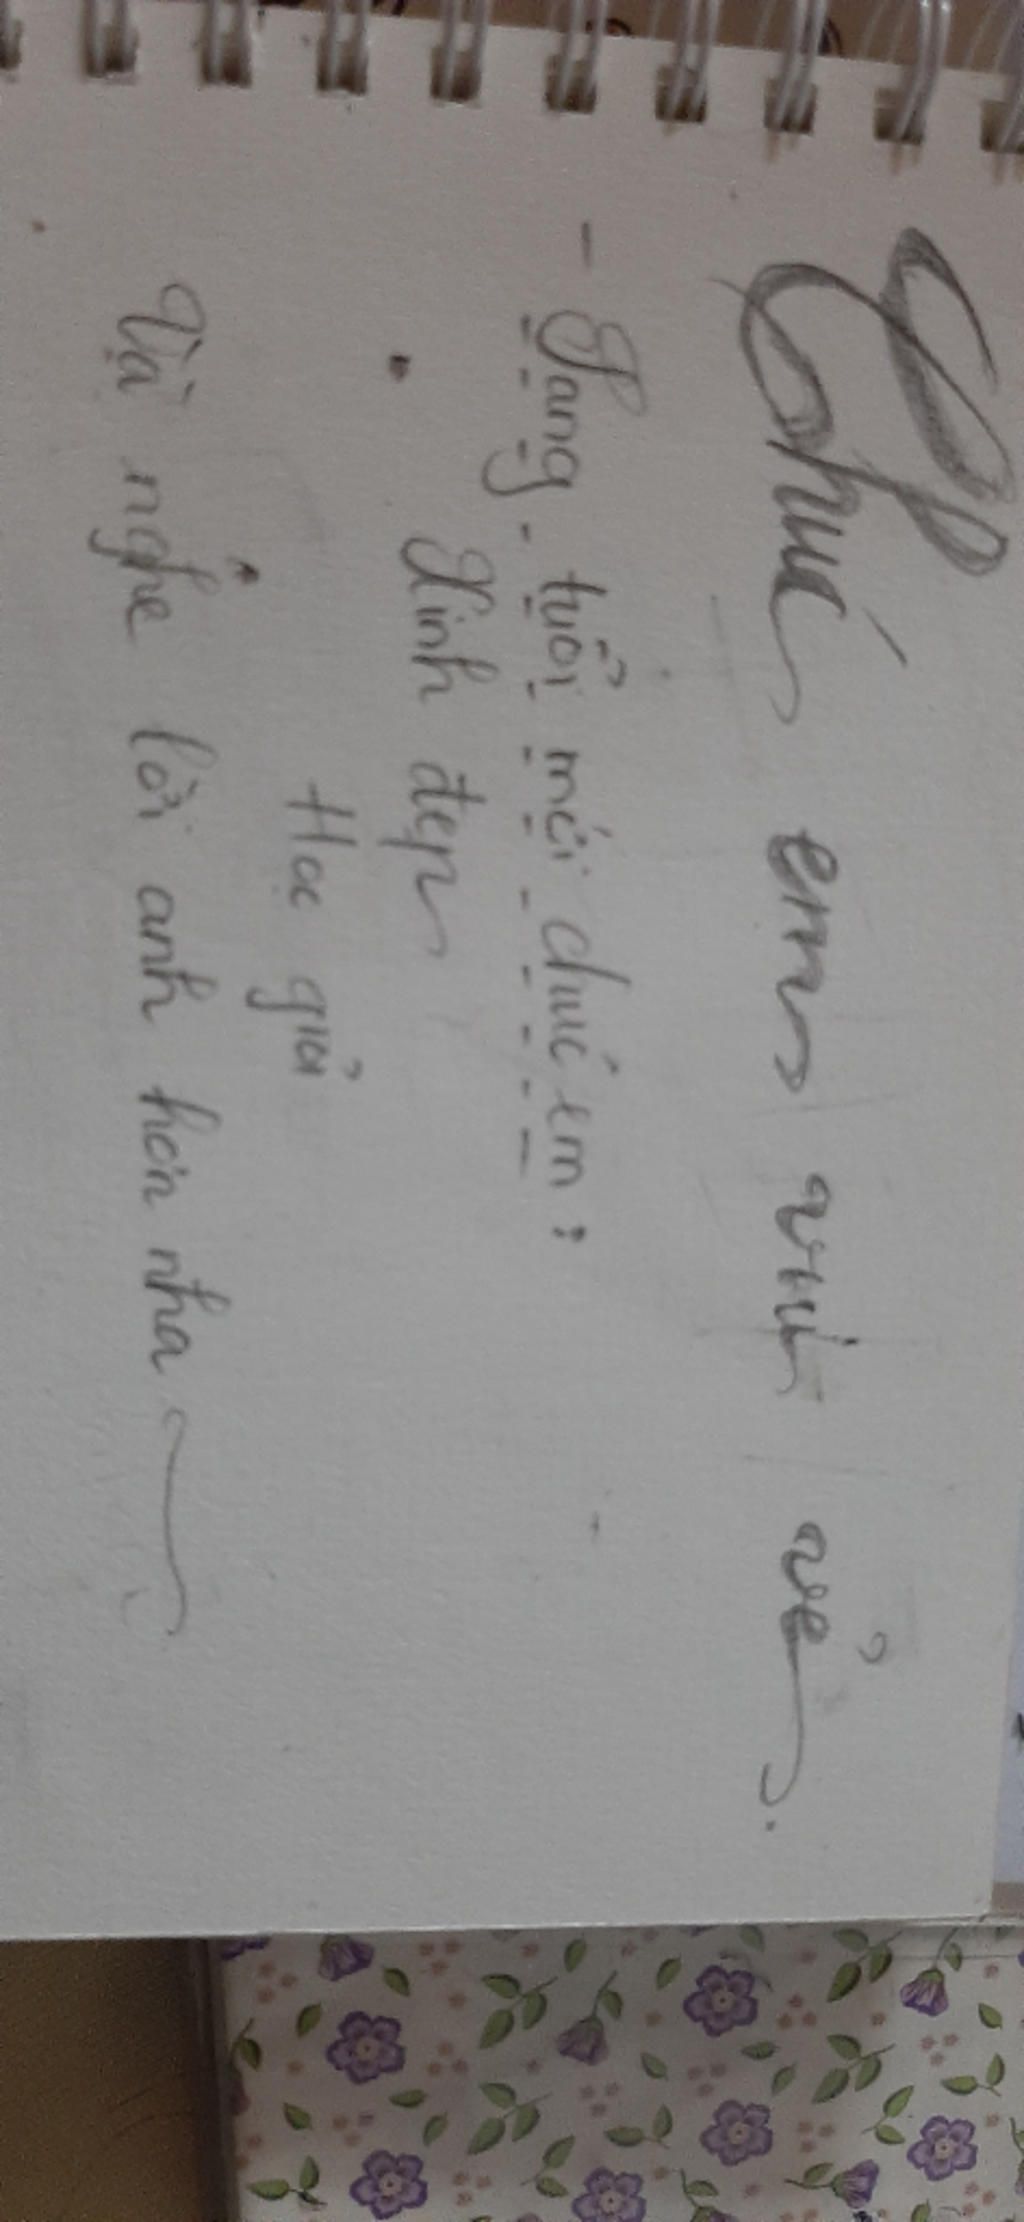 Chúc em vui vẻ.
- Sang tuổi mới chúc em :
Xinh đẹp
Học giỏi
Và nghe lời anh hơn nha